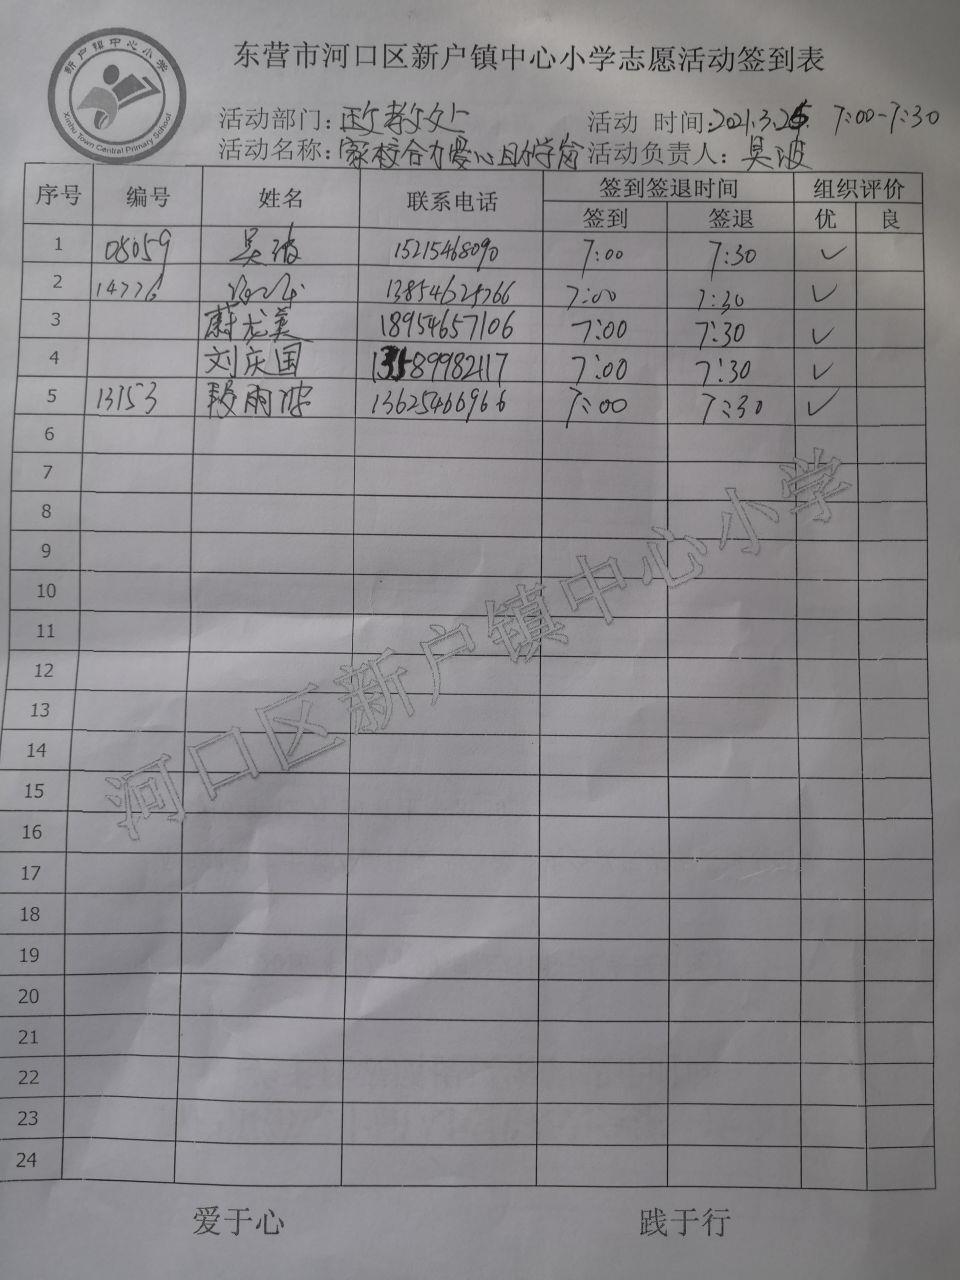 新户镇中心小学
Xinhu Town Central Primary School
东营市河口区新户镇中心小学志愿活动签到表
活动部门:政教处 活动 时间:2021.3.25 7:00-7:30
活动名称:家校合力爱心助学岗 活动负责人:吴波
序号 编号 姓名 联系电话 签到签退时间 组织评价
签到 签退 优 良
1 08059 吴波 15215468090 7:00 7:30 ✓
2 14776 13854625766 7:00 7:30 ✓
3 蔚龙美 18954657106 7:00 7:30 ✓
4 刘庆国 13589982117 7:00 7:30 ✓
5 13153 段雨 13625466966 7:00 7:30 ✓
6
7
8
9
10
11
12
13
14
15
16
17
18
19
20
21
22
23
24
河口区新户镇中心小学
爱于心 践于行